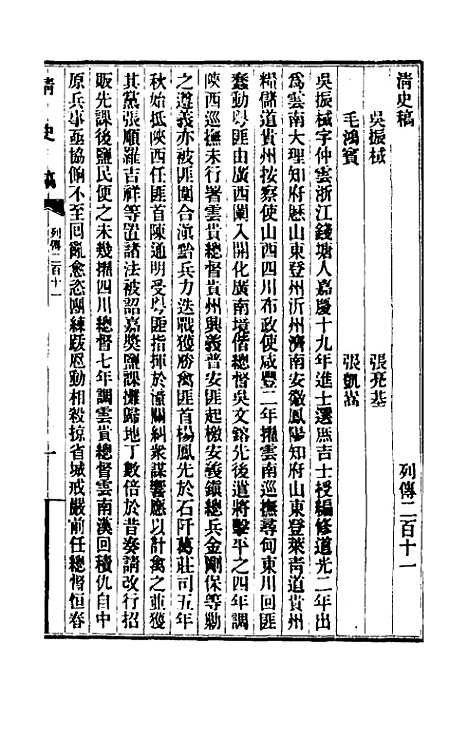 清史稿　列傳二百十一
吳振棫　張亮基
毛鴻賓　張凱嵩
吳振棫字仲雲浙江錢塘人嘉慶十九年進士選庶吉士授編修道光二年出
為雲南大理知府歷山東登州沂州濟南安徽鳳陽知府山東登萊青道貴州
糧儲道貴州按察使山西四川布政使咸豐二年擢雲南巡撫尋甸東川回匪
蠢動粵匪由廣西闌入開化廣南境偕總督吳文鎔先後遣將擊平之四年調
陝西巡撫未行署雲貴總督貴州興義普安匪起檄安義鎮總兵金剛保等勦
之遵義亦被匪圍合滇黔兵力迭戰獲勝禽匪首楊鳳先於石阡葛莊司五年
秋始抵陝西任匪首陳通明受粵匪指揮於潼關糾衆謀響應以計禽之並獲
其黨張順羅吉祥等置諸法被詔嘉獎鹽課攤歸地丁數倍於昔奏請改行招
販先課後鹽民便之未幾擢四川總督七年調雲貴總督雲南漢回積仇自中
原兵事亟協餉不至回亂愈恣團練跃恩動相殺掠省城戒嚴前任總督恒春
清史稿　列傳二百十一　一